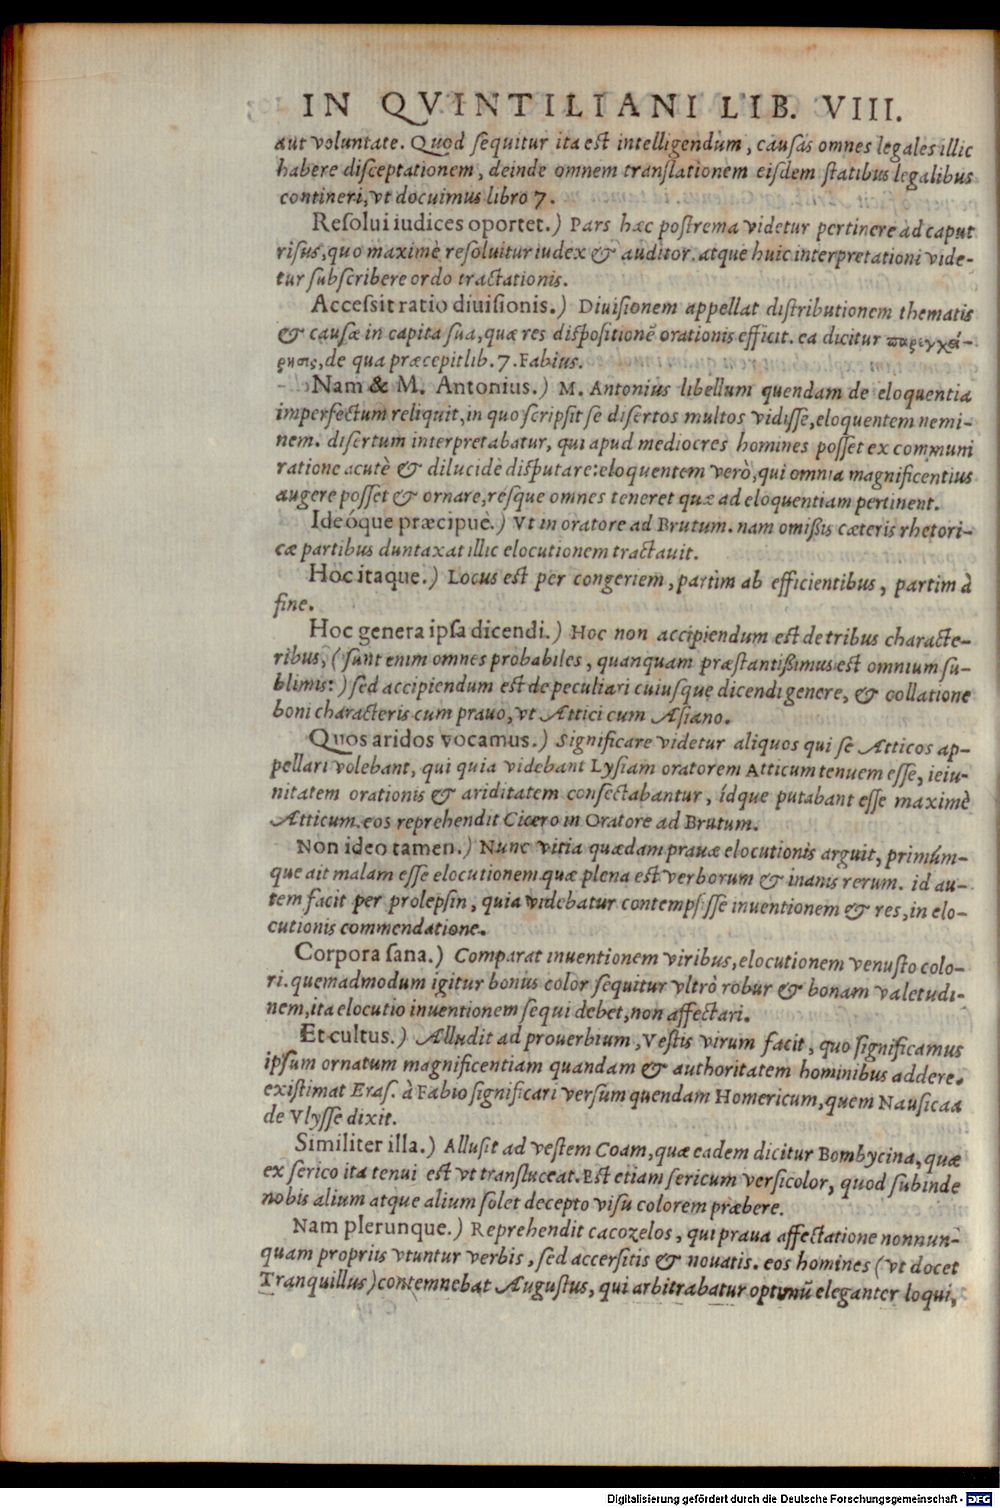 IN QVINTILIANI LIB. VIII.
aut voluntate. Quod ſequitur ita est intelligendum, cauſas omnes legales illic
habere diſceptationem, deinde omnem tranſlationem eiſdem ſtatibus legalibus
contineri, vt docuimus libro 7.
Reſolui iudices oportet.) Pars hæc poſtrema videtur pertinere ad caput
riſus, quo maximè reſoluitur iudex & auditor. atque huic interpretationi vide-
tur ſubſcribere ordo tractationis.
Acceſsit ratio diuiſionis.) Diuiſionem appellat diſtributionem thematis
& cauſæ in capita ſua, quæ res diſpoſitionẽ orationis efficit. ea dicitur παρεγχεί-
ρησις, de qua præcepit lib. 7. Fabius.
Nam & M. Antonius.) M. Antonius libellum quendam de eloquentia
imperfectum reliquit, in quo ſcripſit ſe diſertos multos vidiſſe, eloquentem nemi-
nem. diſertum interpretabatur, qui apud mediocres homines poſſet ex communi
ratione acutè & dilucidè diſputare: eloquentem verò, qui omnia magnificentius
augere poſſet & ornare, reſque omnes teneret quæ ad eloquentiam pertinent.
Ideóque præcipuè.) Vt in oratore ad Brutum. nam omißis cæteris rhetori-
cæ partibus duntaxat illic elocutionem tractauit.
Hoc itaque.) Locus est per congeriem, partim ab efficientibus, partim à
fine.
Hoc genera ipſa dicendi.) Hoc non accipiendum est de tribus characte-
ribus, (ſunt enim omnes probabiles, quanquam præſtantißimus est omnium ſu-
blimis:) ſed accipiendum est de peculiari cuiuſque dicendi genere, & collatione
boni characteris cum prauo, vt Attici cum Aſiano.
Quos aridos vocamus.) Significare videtur aliquos qui ſe Atticos ap-
pellari volebant, qui quia videbant Lyſiam oratorem Atticum tenuem eſſe, ieiu-
nitatem orationis & ariditatem conſectabantur, ídque putabant eſſe maximè
Atticum. eos reprehendit Cicero in Oratore ad Brutum.
Non ideo tamen.) Nunc vitia quædam prauæ elocutionis arguit, primúm-
que ait malam eſſe elocutionem quæ plena est verborum & inanis rerum. id au-
tem facit per prolepſin, quia videbatur contempſiſſe inuentionem & res, in elo-
cutionis commendatione.
Corpora ſana.) Comparat inuentionem viribus, elocutionem venuſto colo-
ri. quemadmodum igitur bonus color ſequitur vltrò robur & bonam valetudi-
nem, ita elocutio inuentionem ſequi debet, non affectari.
Et cultus.) Alludit ad prouerbium, Veſtis virum facit, quo ſignificamus
ipſum ornatum magnificentiam quandam & authoritatem hominibus addere.
existimat Eraſ. à Fabio ſignificari verſum quendam Homericum, quem Nauſicaa
de Vlyſſe dixit.
Similiter illa.) Alluſit ad veſtem Coam, quæ eadem dicitur Bombycina, quæ
ex ſerico ita tenui est vt transluceat. Est etiam ſericum verſicolor, quod ſubinde
nobis alium atque alium ſolet decepto viſu colorem præbere.
Nam plerunque.) Reprehendit cacozelos, qui praua affectatione nonnun-
quam propriis vtuntur verbis, ſed accerſitis & nouatis. eos homines (vt docet
Tranquillus) contemnebat Auguſtus, qui arbitrabatur optimũ eleganter loqui,
Digitalisierung gefördert durch die Deutsche Forschungsgemeinschaft - DFG